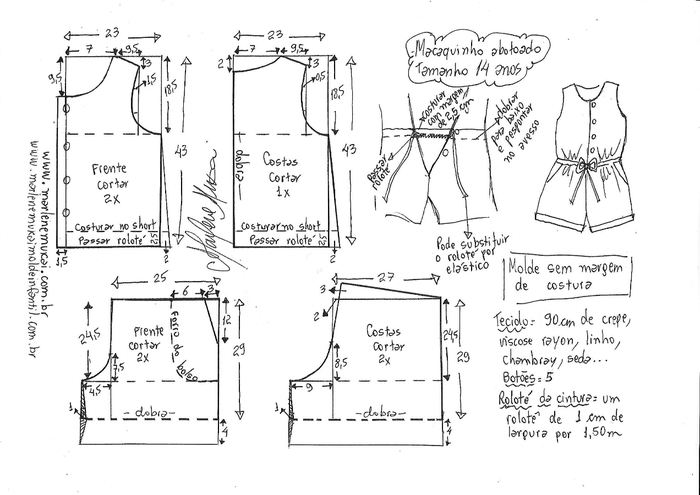 Macaquinho abotoado
Tamanho 14 anos
23
7
9,5
3
9,5
1,5
18,5
43
Frente
cortar
2x
Costurar no short
Passar roloté
2,5
1,5
2
23
7
9,5
2
3
0,5
18,5
43
dobra
Costas
Cortar
1x
costurar no short
Passar roloté
2,5
2
www.marlenemukai.com.br
www.marlenemukaimoldeinfantil.com.br
Marlene Mukai
costurar
com margem
de 2,5 cm
dobrar
para baixo
e pespontar
no avesso
Passar
roloté
Pode substituir
o roloté por
elástico
25
6
3
12
24,5
29
Frente
cortar
2x
Forro do bolso
7,5
4,5
1
-dobra-
4
27
3
2
Costas
cortar
2x
24,5
29
8,5
9
1
-dobra-
4
Molde sem margem
de costura
Tecido = 90 cm de crepe,
viscose rayon, linho,
chambray, seda...
Botões = 5
Roloté da cintura = um
roloté de 1 cm de
largura por 1,50m